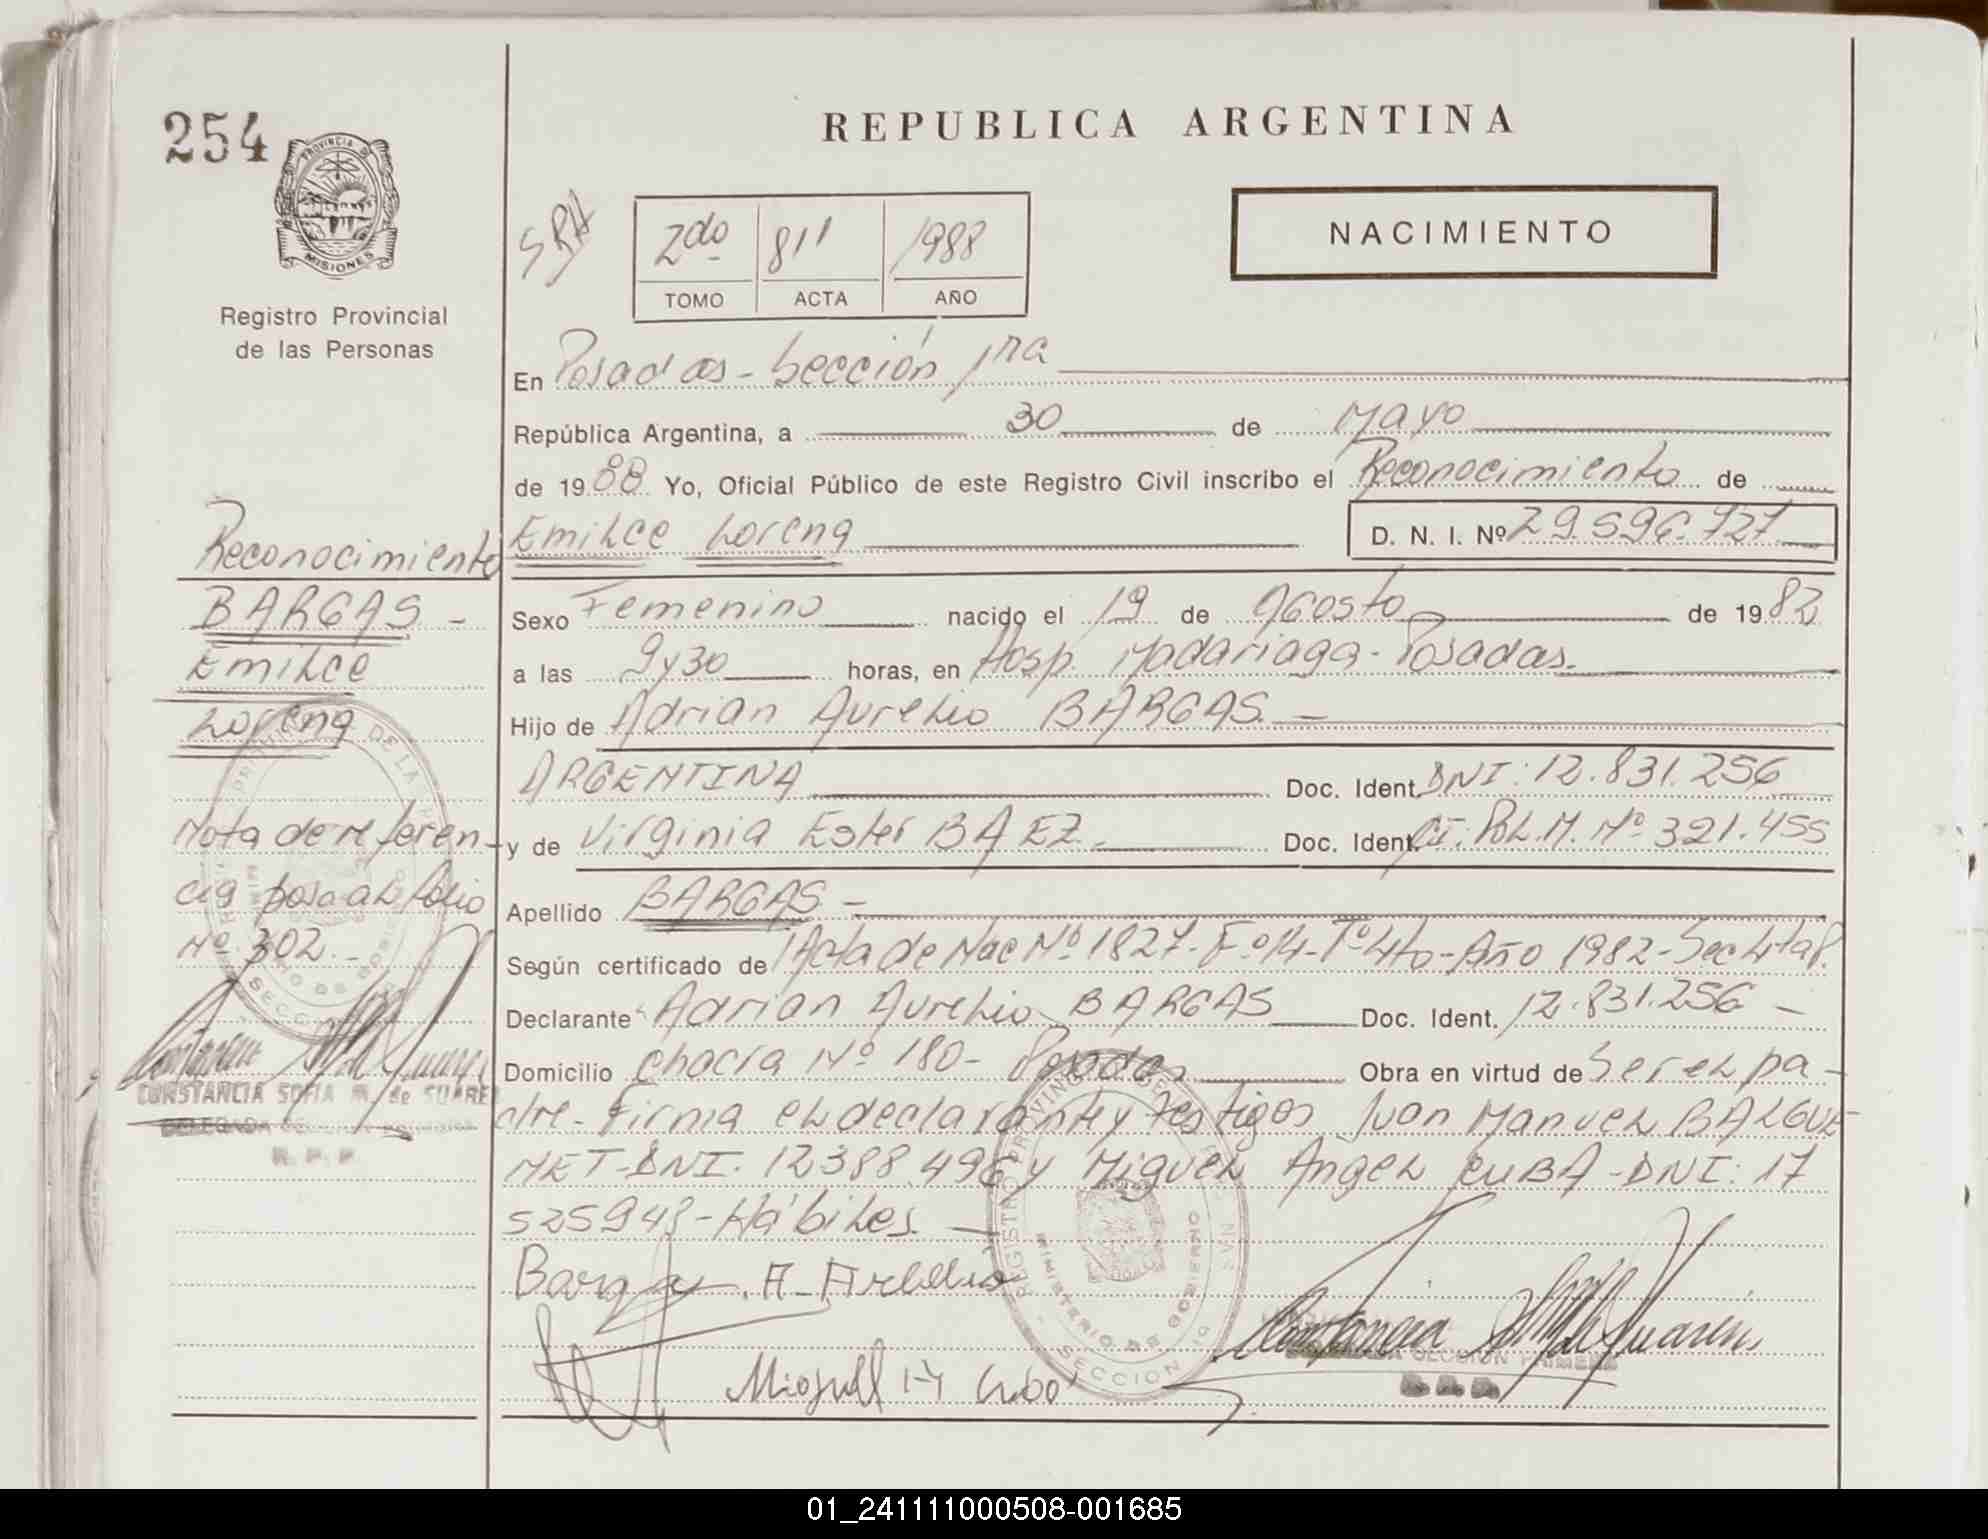 254
PROVINCIA DE
MISIONES
Registro Provincial
de las Personas
REPUBLICA ARGENTINA
SRA
2do 811 1988
TOMO ACTA AÑO
NACIMIENTO
En Posadas - Sección 1ra
República Argentina, a 30 de Mayo
de 1988 Yo, Oficial Público de este Registro Civil inscribo el Reconocimiento de
Emilce Lorena D. N. I. Nº 29.596.727
Sexo Femenino nacido el 19 de Agosto de 1982
a las 9 y 30 horas, en Hosp. Madariaga - Posadas.
Hijo de Adrian Aurelio BARGAS. -
ARGENTINA Doc. Ident. DNI: 12.831.256
y de Virginia Ester BAEZ. - Doc. Ident. CI: Pol. M. Nº 321.455
Apellido BARGAS -
Según certificado de Acta de Nac Nº 1827 - Fº 14 - Tº 4to - Año 1982 - Sec 4ta P.
Declarante Adrian Aurelio BARGAS Doc. Ident. 12.831.256 -
Domicilio Chacra Nº 180 - Posadas Obra en virtud de Ser el pa-
dre - Firma el declarante y testigos Juan Manuel BALGUE-
MET - DNI. 12388.496 y Miguel Angel CUBA - DNI: 17
525948 - Hábiles. -
Bargas. A. Aurelio
Reconocimiento
BARGAS -
Emilce
Lorena
Nota de referen-
cia pasa al folio
Nº 302. -
CONSTANCIA SOFIA M. de SUAREZ
DELEGADA
R. P. P.
REGISTRO PROVINCIAL DE LAS PERSONAS
MINISTERIO DE GOBIERNO
SECCION
SECCION PRIMERA
01_241111000508-001685